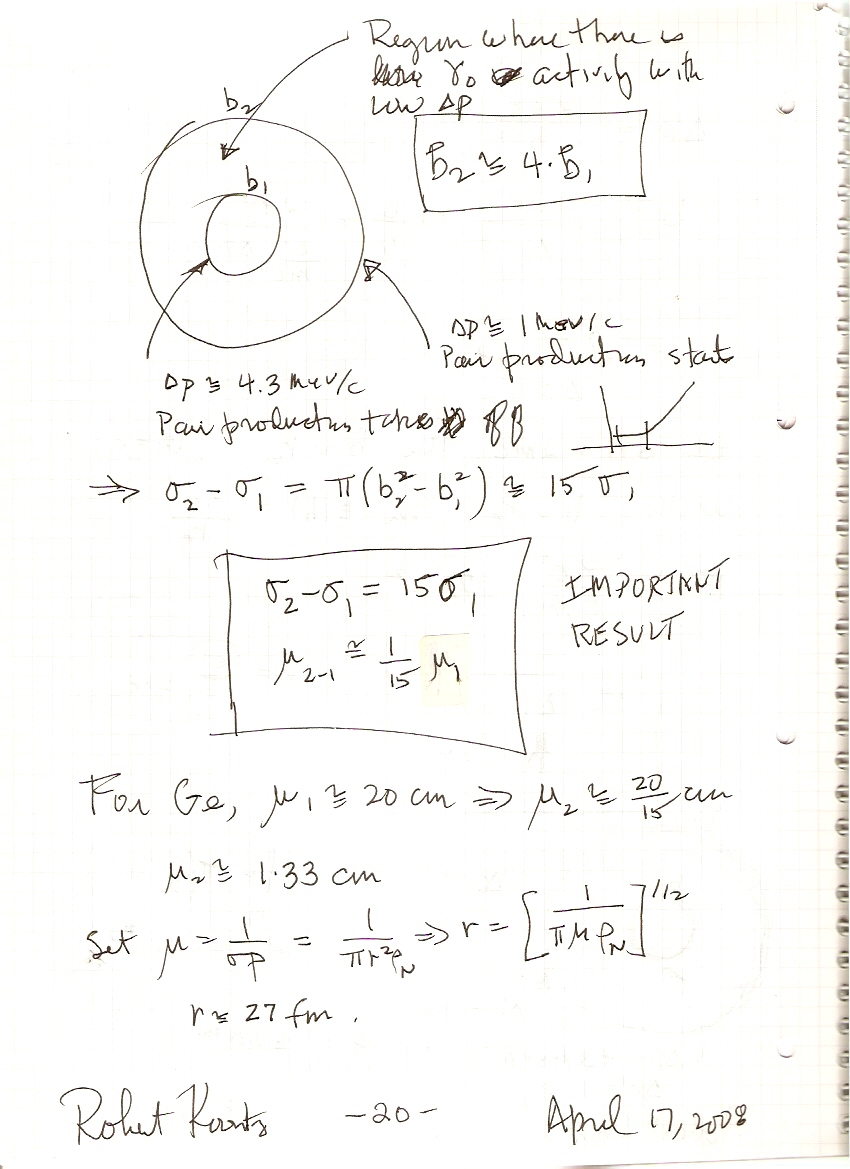 Region where there is
γ₀ activity with
low Δp
b₂
b₁
b̄₂ ≅ 4·b̄₁
Δp ≅ 1 MeV/c
Pair production starts
Δp ≅ 4.3 MeV/c
Pair production takes off
⇒ σ₂ - σ₁ = π(b₂² - b₁²) ≅ 15 σ₁
σ₂ - σ₁ = 15σ₁
μ₂₋₁ ≅ 1/15 μ₁
IMPORTANT
RESULT
For Ge, μ₁ ≅ 20 cm ⇒ μ₂ ≅ 20/15 cm
μ₂ ≅ 1.33 cm
Set μ = 1/σρ = 1/πr²ρ_N ⇒ r = [1/πμρ_N]^1/2
r ≅ 27 fm.
Robert Koontz -20- April 17, 2008